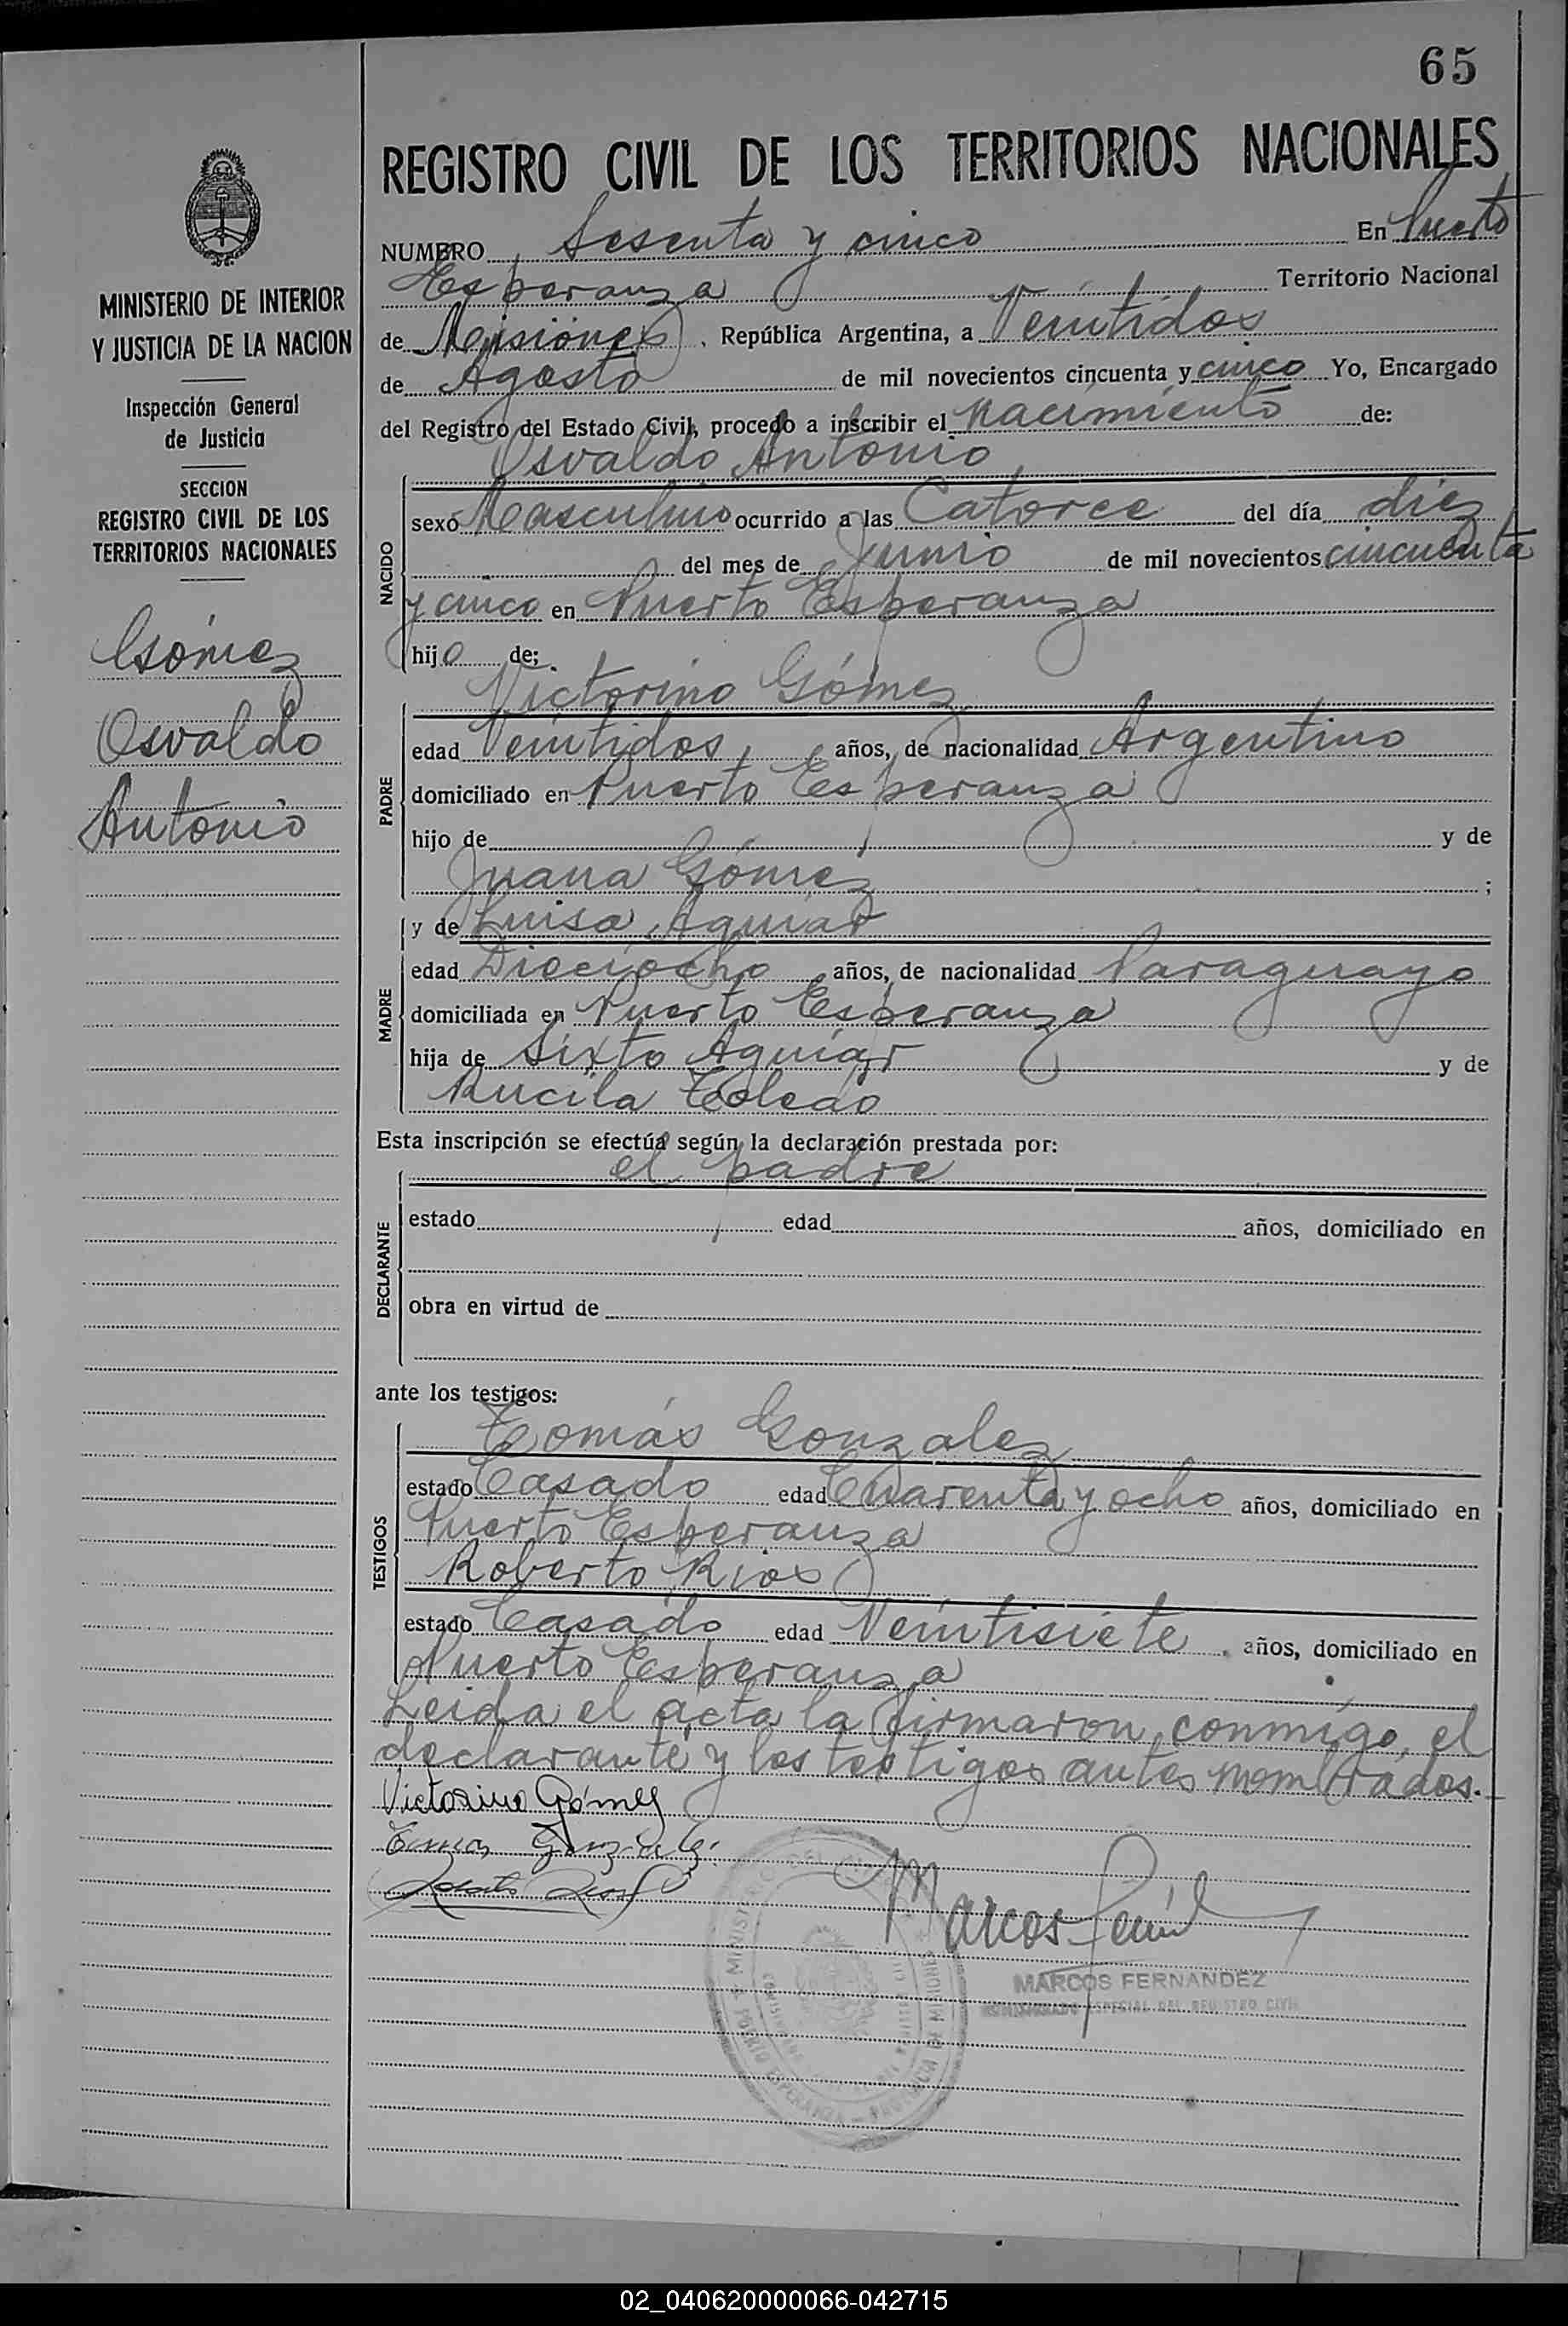 65
REGISTRO CIVIL DE LOS TERRITORIOS NACIONALES
MINISTERIO DE INTERIOR
Y JUSTICIA DE LA NACION
Inspección General
de Justicia
SECCION
REGISTRO CIVIL DE LOS
TERRITORIOS NACIONALES
Gómez
Osvaldo
Antonio
NUMERO Sesenta y cinco En Puerto
Esperanza Territorio Nacional
de Misiones, República Argentina, a Veintidos
de Agosto de mil novecientos cincuenta y cinco Yo, Encargado
del Registro del Estado Civil, procedo a inscribir el Nacimiento de:
Osvaldo Antonio
NACIDO
sexo Masculino ocurrido a las Catorce del día diez
del mes de Junio de mil novecientos cincuenta
y cinco en Puerto Esperanza
hijo de;
Victorino Gómez
PADRE
edad Veintidos años, de nacionalidad Argentino
domiciliado en Puerto Esperanza
hijo de y de
Juana Gómez ;
y de Luisa Aguiar
MADRE
edad Dieciocho años, de nacionalidad Paraguayo
domiciliada en Puerto Esperanza
hija de Sixto Aguiar y de
Rucila Toledo
Esta inscripción se efectúa según la declaración prestada por:
el padre
DECLARANTE
estado edad años, domiciliado en
obra en virtud de
ante los testigos:
Tomás Gonzalez
TESTIGOS
estado Casado edad Cuarenta y ocho años, domiciliado en
Puerto Esperanza
Roberto Rios
estado Casado edad Veintisiete años, domiciliado en
Puerto Esperanza
Leida el acta la firmaron conmigo, el
declarante y los testigos antes nombrados.-
Victorino Gómez
Tomas Gonzalez
Marcos Fernández
MARCOS FERNANDEZ
ESPECIAL DEL REGISTRO CIVIL
02_040620000066-042715